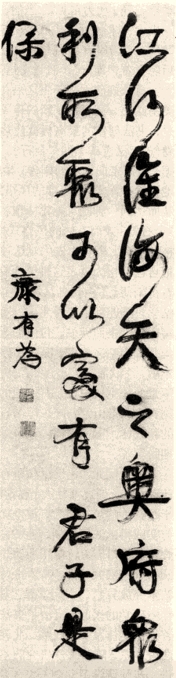 江河淮海天之奥府眾
利所聚可以富有君子是
保
康有為